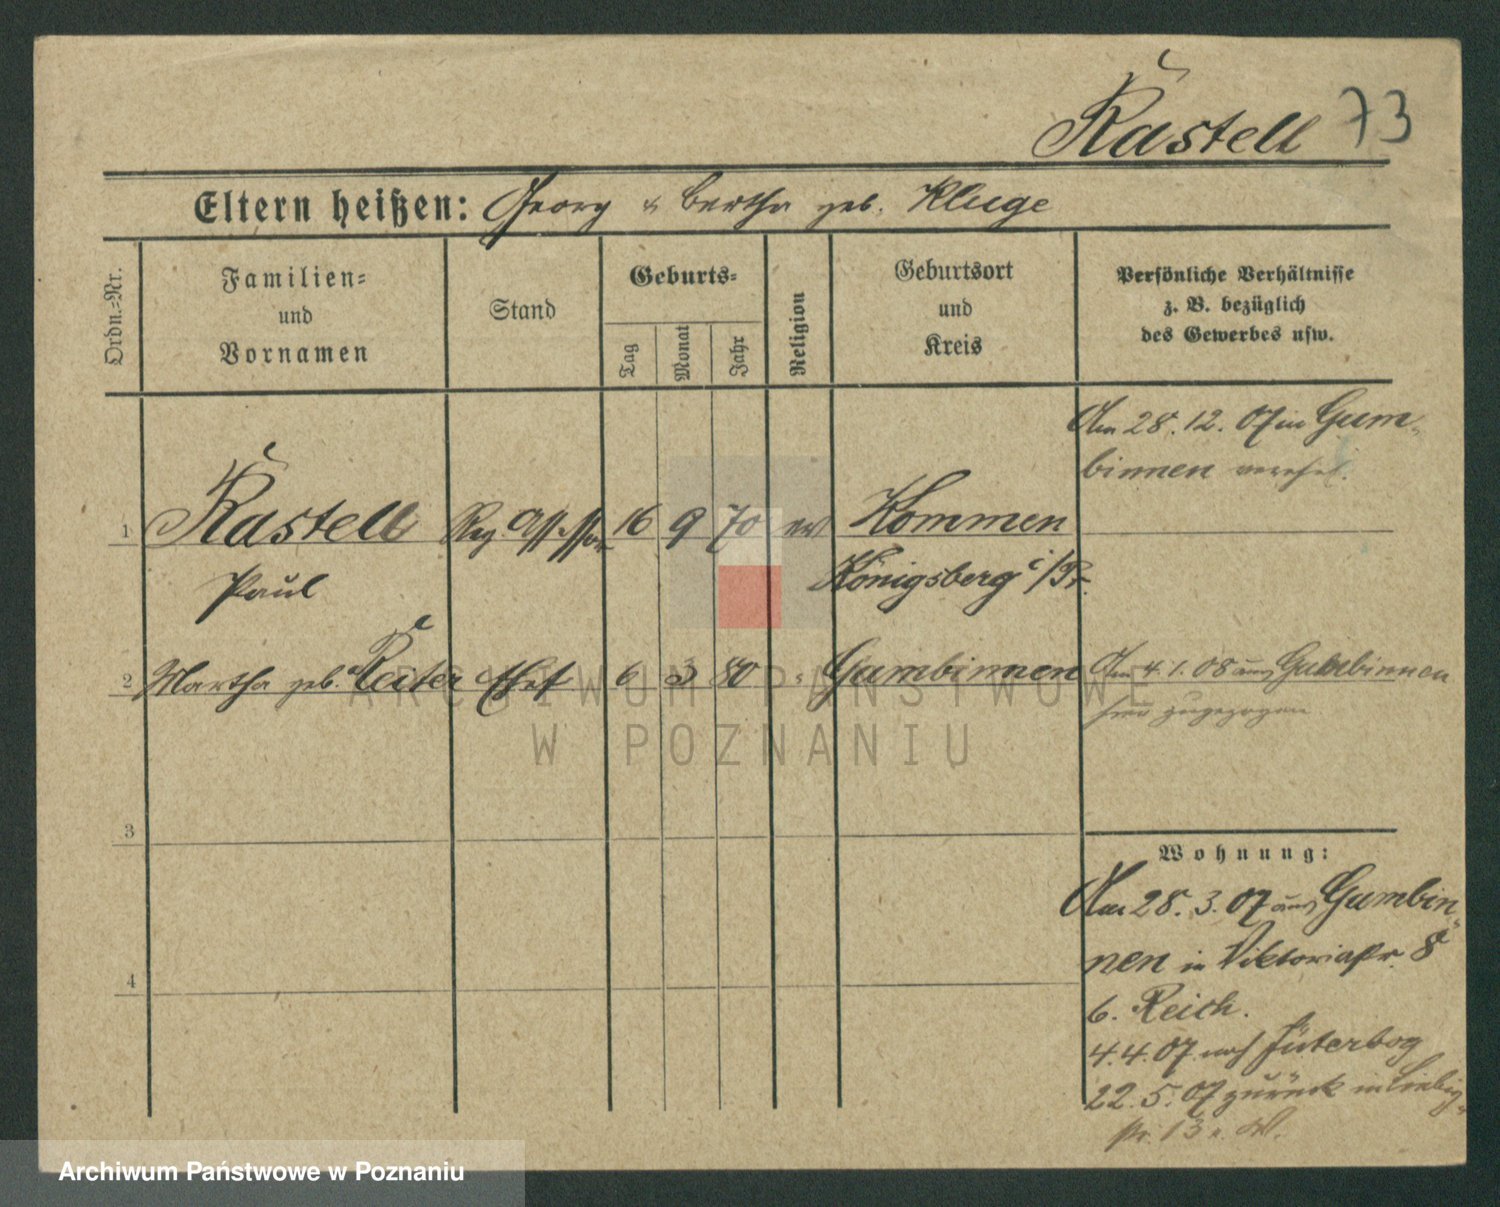 Rastell 73
Eltern heißen: Georg & Bertha geb. Kluge
Ordn.-Nr.
Familien-
und
Vornamen
Stand
Geburts-
Tag
Monat
Jahr
Religion
Geburtsort
und
Kreis
Persönliche Verhältnisse
z. B. bezüglich
des Gewerbes usw.
Am 28.12.07 in Gum-
binnen verehel.
1 Rastell Reg Assessor 16 9 70 ev Kommen
Paul Königsberg i/Pr.
2 Martha geb. Reiter Ehef 6 3 80 " Gumbinnen Am 4.1.08 aus Gumbinnen
hier zugezogen
3
Wohnung:
Am 28.3.07 aus Gumbin-
nen in Viktoriastr. 8
4
b. Reich.
4.4.07 nach Jüterbog
22.5.07 zurück in Liebig-
str. 13
ARCHIWUM PAŃSTWOWE
W POZNANIU
Archiwum Państwowe w Poznaniu